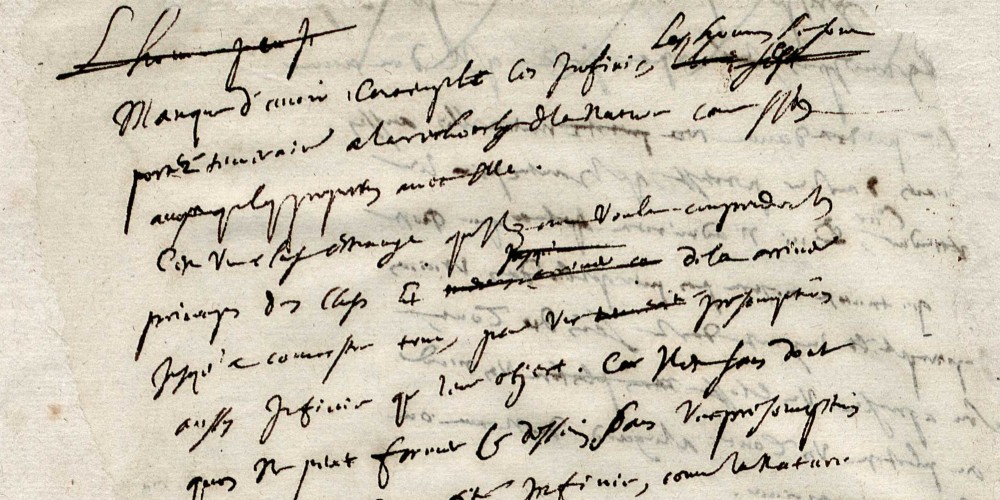 Manque d'avoir contemplé ces infinis, les hommes se sont
portéz temerairemt a la recherche de la Nature comme s'ils
avoyent quelque proportion avec elle.
C'est une chose estrange qu'ils ont voulu comprendre les
principes des choses Et de la arriver
jusqu'a connoistre tout, par une présomption
aussy infinie que leur object. Car il est sans doute
qu'on ne peut former ce dessein sans une présomption
infinie, comme la Nature